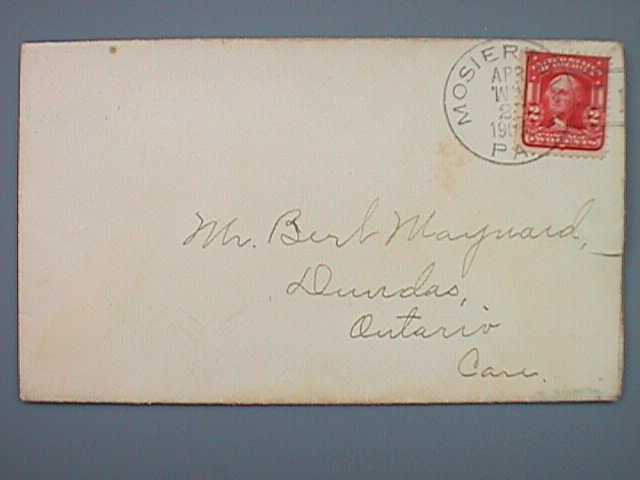 MOSIER
APR
2
PA.
2 2
Mr. Bert Maynard,
Dundas,
Ontario
Can.